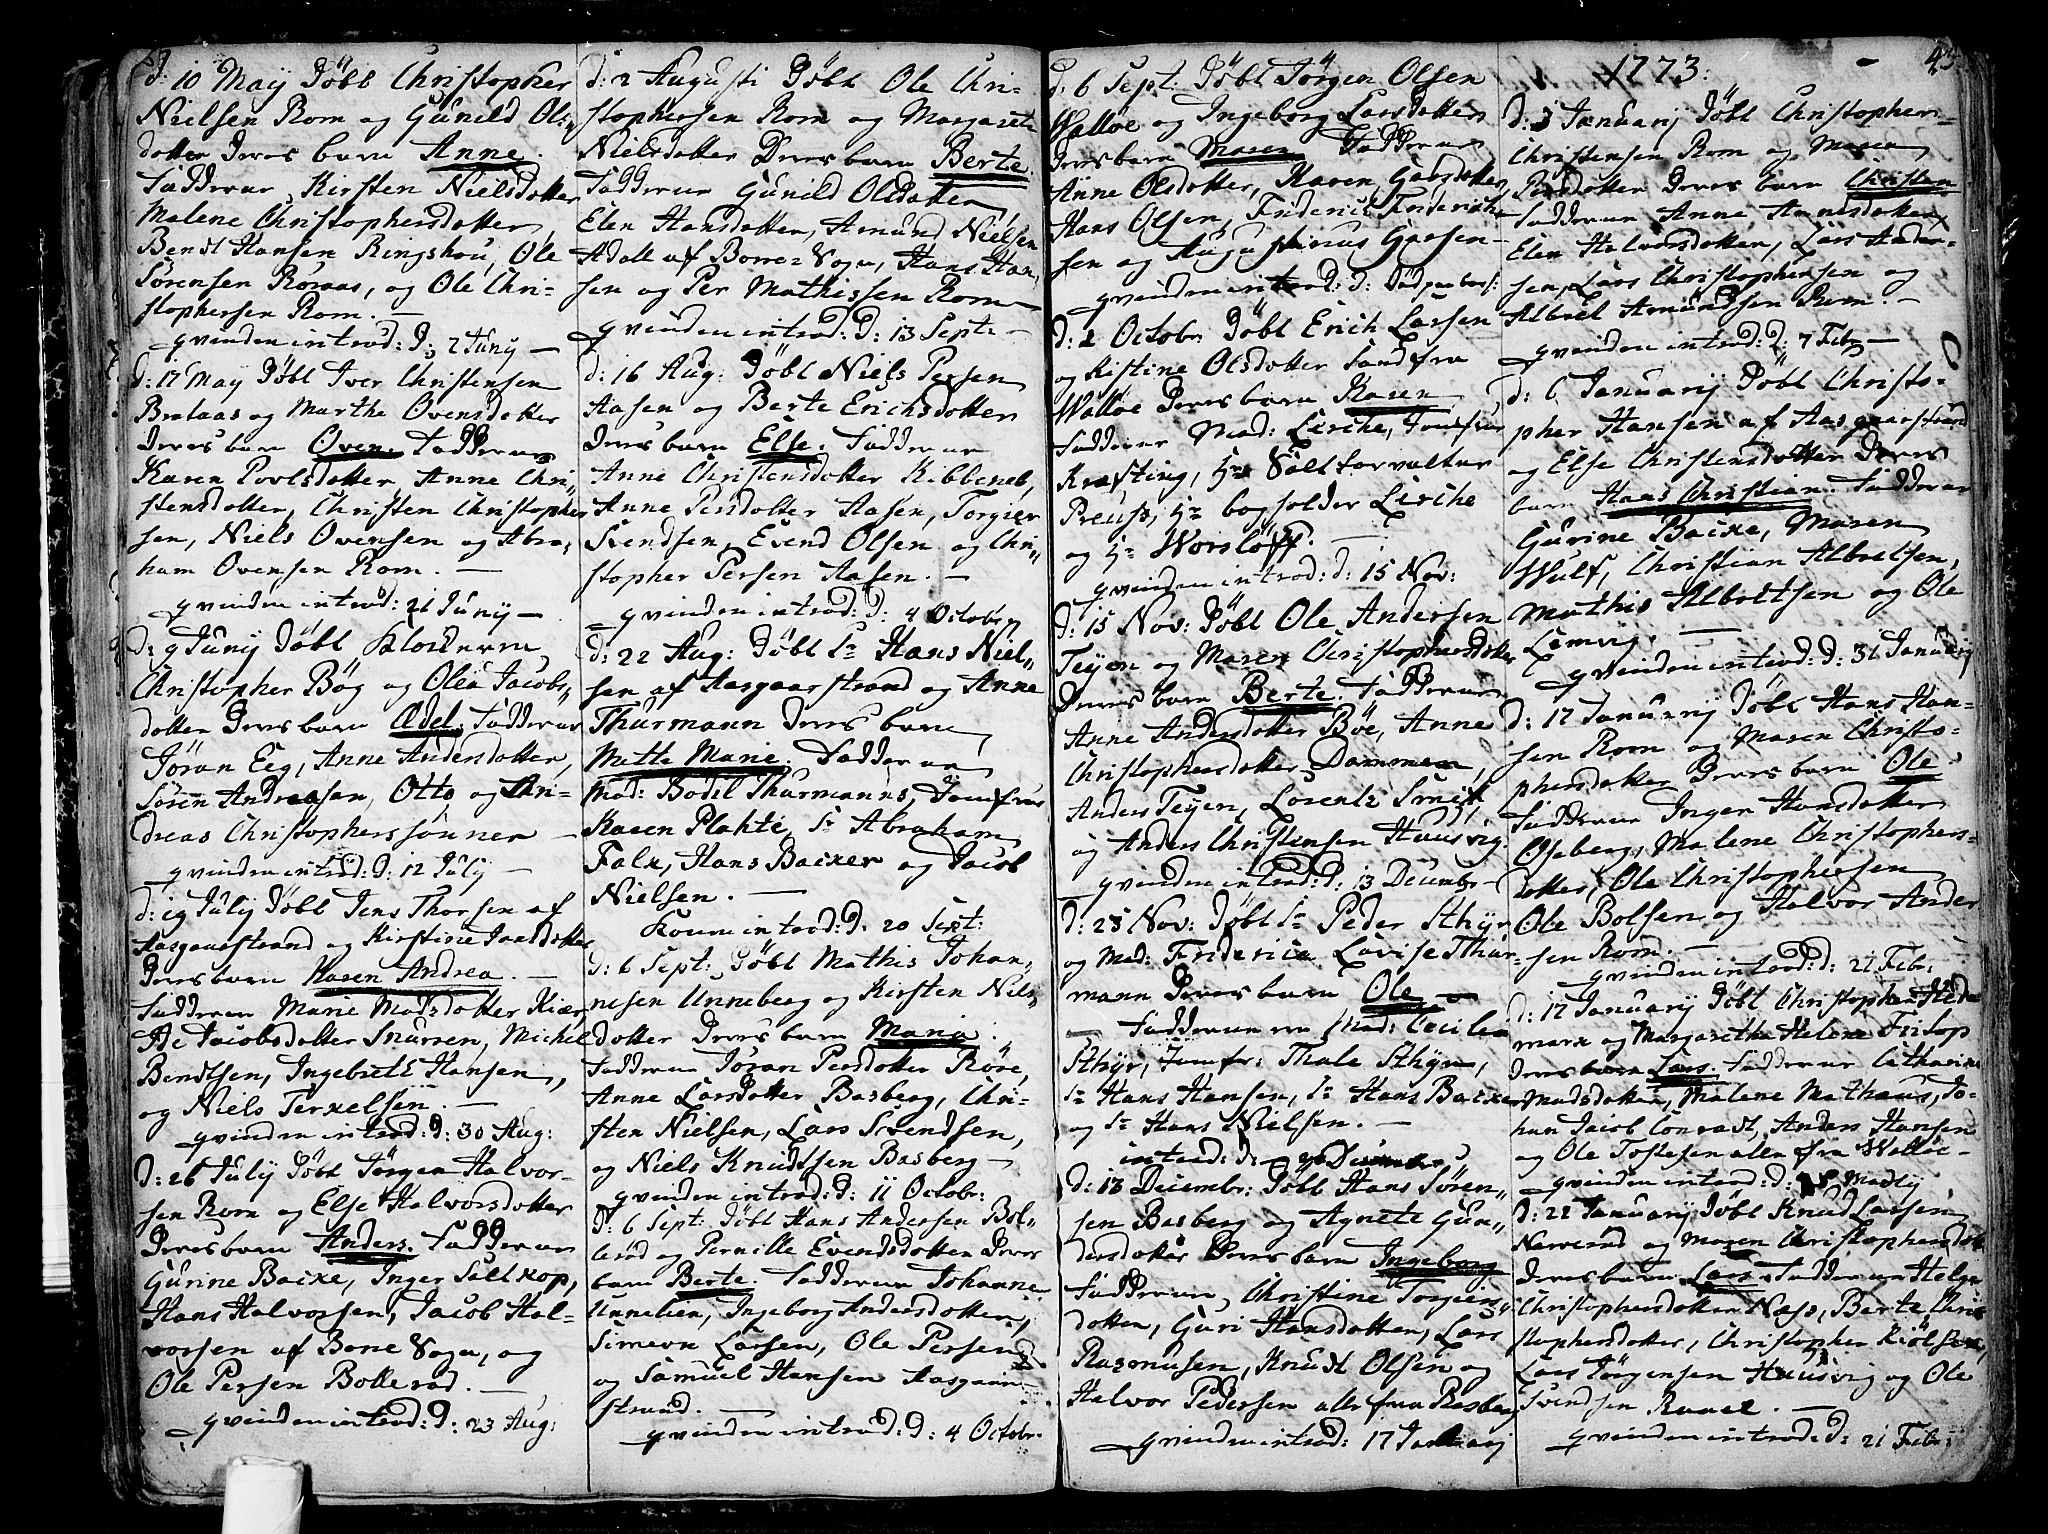 d: 10 Maij Döbt Christopher
Nielsen Rom og Gunild Ols-
dotter Deres barn Anne.
Fadderne Kirsten Nielsdotter
Malene Christophersdotter,
Bendt Hansen Ringshou, Ole
Sörensen Röraas, og Ole Chri-
stophersen Rom. —
qvinden introd: D: 7 Junij —
d: 17 May Döbt Iver Christensen
Brataas og Marthe Ovensdotter
Deres barn Oven. Fadderne
Karen Povlsdotter Anne Chri-
stensdotter, Christen Christopher-
sen, Niels Ovensen og Abra-
ham Ovensen Rom. —
qvinden introd: 21 Junij —
d: 9 Junij Döbt Klokkeren
Christopher Bög og Olea Jacobs-
dotter Deres barn Ædel. Fadderne
Jöran Eeg, Anne Andersdotter,
Sören Andreasen, Otto og An-
dreas Christopherssönner —
qvinden introd: D: 12 Julij —
d: 19 Julij Döbt Jens Thorsen af
Aasgaarstrand og Kirstine Iversdotter
Deres barn Karen Andrea. —
Fadderne Marie Madsdotter Kiær
Jacobsdotter Snurren, Michel
Bendtsen, Ingebret Hansen,
og Niels Terkelsen. —
qvinden introd: D: 30 Aug:
d: 26 Julij Döbt Jörgen Halvor-
sen Rom og Else Halvorsdotter
Deres barn Anders. Fadderne
Gurine Backe, Inger Saltkop,
Hans Halvorsen, Jacob Hal-
vorsen af Borre Sogn, og
Ole Persen Bollerød. —
qvinden introd: D: 23 Aug:
d: 2 Augusti Döbt Ole Chri-
stophersen Rom og Margarete
Nielsdotter Deres barn Berte.
Fadderne Gunild Olsdotter
Elen Hansdotter, Amund Nielsen
Adall af Borre Sogn, Hans Han-
sen og Per Mathissen Rom —
qvinden introd: D: 13 Sept: —
d: 16 Aug: Döbt Niels Persen
Aasen og Berte Erichsdotter
Deres barn Else. Fadderne
Anne Christensdotter Kibbenes,
Anne Persdotter Aasen, Torgier
Svendsen, Evend Olsen og Chri-
stopher Persen Aasen. —
qvinden introd: D: 4 Octobr.
d: 22 Aug: Döbt Sr Hans Niel-
sen af Aasgaarstrand og Anne
Thurmann Deres barn
Mette Marie. Fadderne
Mad: Bodil Thurmanns, Jomfrue
Karen Plahte, Sr Abraham
Falk, Hans Backer og Jacob
Nielsen. —
Konen introd: D: 20 Sept:
d: 6 Sept: Döbt Mathis Johan-
nesen Unneberg og Kirsten Niels-
dotter Deres barn Maria.
Fadderne Jöran Persdotter Röre,
Anne Larsdotter Basberg, Chri-
sten Nielsen, Lars Svendsen,
og Niels Knudtsen Basberg —
qvinden introd: D: 11 Octobr:
d: 6 Sept: Döbt Hans Andersen Bol-
lerød og Pernille Evendsdotter Deres
barn Berte. Fadderne Johanne
Unnelien, Ingeborg Andersdotter,
Simevn Larsen, Ole Persen
og Samuel Hansen Aasgaar-
strand. —
qvinden introd: D: 4 Octobr.
d: 6 Sept: Döbt Jörgen Olsen
Walloe og Ingeborg Larsdotter
Deres barn Maren. Fadderne
Anne Olsdotter, Karen Garsdotter,
Hans Olsen, Friderich Friderich-
sen og Augustinus Garsen —
qvinden introd: D: Död paa bars:
d: 2 Octobr: Döbt Erich Larsen
og Kistine Olsdotter Sand fra
Walloe Deres barn Karen
Fadderne Mad: Lerche, Jomfrue
Krafting, Hr Saltforvalter
Preuss, Hr bogholder Lerche
og Hr Worslöff. —
qvinden introd: D: 15 Nov:
d: 15 Nov: Döbt Ole Andersen
Teyen og Maren Christophersdotter
Deres barn Berte. Fadderne
Anne Andersdotter Böe, Anne
Christophersdotter Dammen,
Anders Teyen, Lorentz Smed,
og Anders Christensen Huusvig.
qvinden introd: D: 13 Decembr —
d: 25 Nov: Döbt Sr Peder Sthyr
og Mad: Friderica Lovise Thur-
mann Deres barn Ole —
Fadderne ere Mad: Cecilia
Sthyr, Jomfr: Thale Sthyr,
Sr Hans Hansen, Sr Hans Backer
og Sr Hans Nielsen. —
introd: D:
d: 13 Decembr: Döbt Hans Sören-
sen Basberg og Agnete Gun-
dersdotter Deres barn Ingeborg
Fadderne, Christine Torgiers-
dotter, Guri Hansdotter, Lars
Rasmusen, Knudt Olsen og
Halvor Pedersen alle fra Basberg
qvinden introd: 17 Januarij
1773. — 45
d: 3 Januarij Döbt Christopher
Christensen Rom og Maren
Persdotter Deres barn Christen
Fadderne Anne Amundsdotter,
Elen Halvorsdotter, Lars Ander-
sen, Lars Christophersen og
Albret Amundsen Rom. —
qvinden introd: D: 7 Febr. —
d: 6 Januarij Döbt Christo-
pher Hansen af Aasgaarstrand
og Else Christensdotter Deres
barn Hans Christian. Fadderne
Gurine Backe, Maren
Wulf, Christian Albretsen,
Mathis Albretsen og Ole
Lemvig. —
qvinden introd: D: 31 Januarij
d: 17 Januarij Döbt Hans Han-
sen Rom og Maren Christo-
phersdotter Deres barn Ole
Fadderne Inger Hansdotter
Oseberg, Malene Christophers-
dotter, Ole Christophersen
Ole Bolsen og Halvor Ander
sen Rom. —
qvinden introd: D: 21 Febr:
d: 17 Januarij Döbt Christopher Hede
marx og Margaretha Helena Fristop
Deres barn Lars. Fadderne Catharina
Madsdotter, Malene Mathæus, Jo-
han Jacob Conradt, Anders Hansen
og Ole Tostesen alle fra Walloe —
qvinden introd: D: Martij
d: 22 Januarij Döbt Knud Larsen
Narverød og Maren Christophersdotter
Deres barn Lars. Fadderne Helge
Christophersdotter Næss, Berte Chri-
stophersdotter, Christopher Kiölsen,
Lars Jörgensen Huusvig og Ole
Svendsen Ravel. —
qvinden introd: D: 21 Febr: